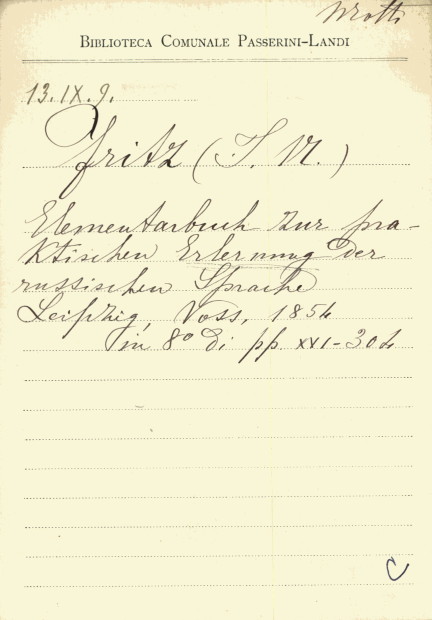 Motti
BIBLIOTECA COMUNALE PASSERINI-LANDI
13.IX.9.
Fritz (S. N.)
Elementarbuch zur pra-
ktischen Erlernung der
russischen Sprache
Leipzig, Voss, 1854
in 8° di pp. XVI-304
C